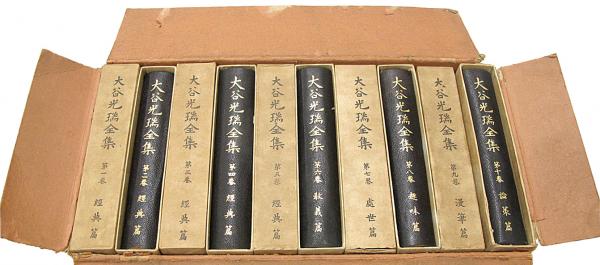 大谷光瑞全集 第一卷 經典篇
大谷光瑞全集 第二卷 經典篇
大谷光瑞全集 第三卷 經典篇
大谷光瑞全集 第四卷 經典篇
大谷光瑞全集 第五卷 經典篇
大谷光瑞全集 第六卷 敎義篇
大谷光瑞全集 第七卷 處世篇
大谷光瑞全集 第八卷 趣味篇
大谷光瑞全集 第九卷 漫筆篇
大谷光瑞全集 第十卷 論策篇